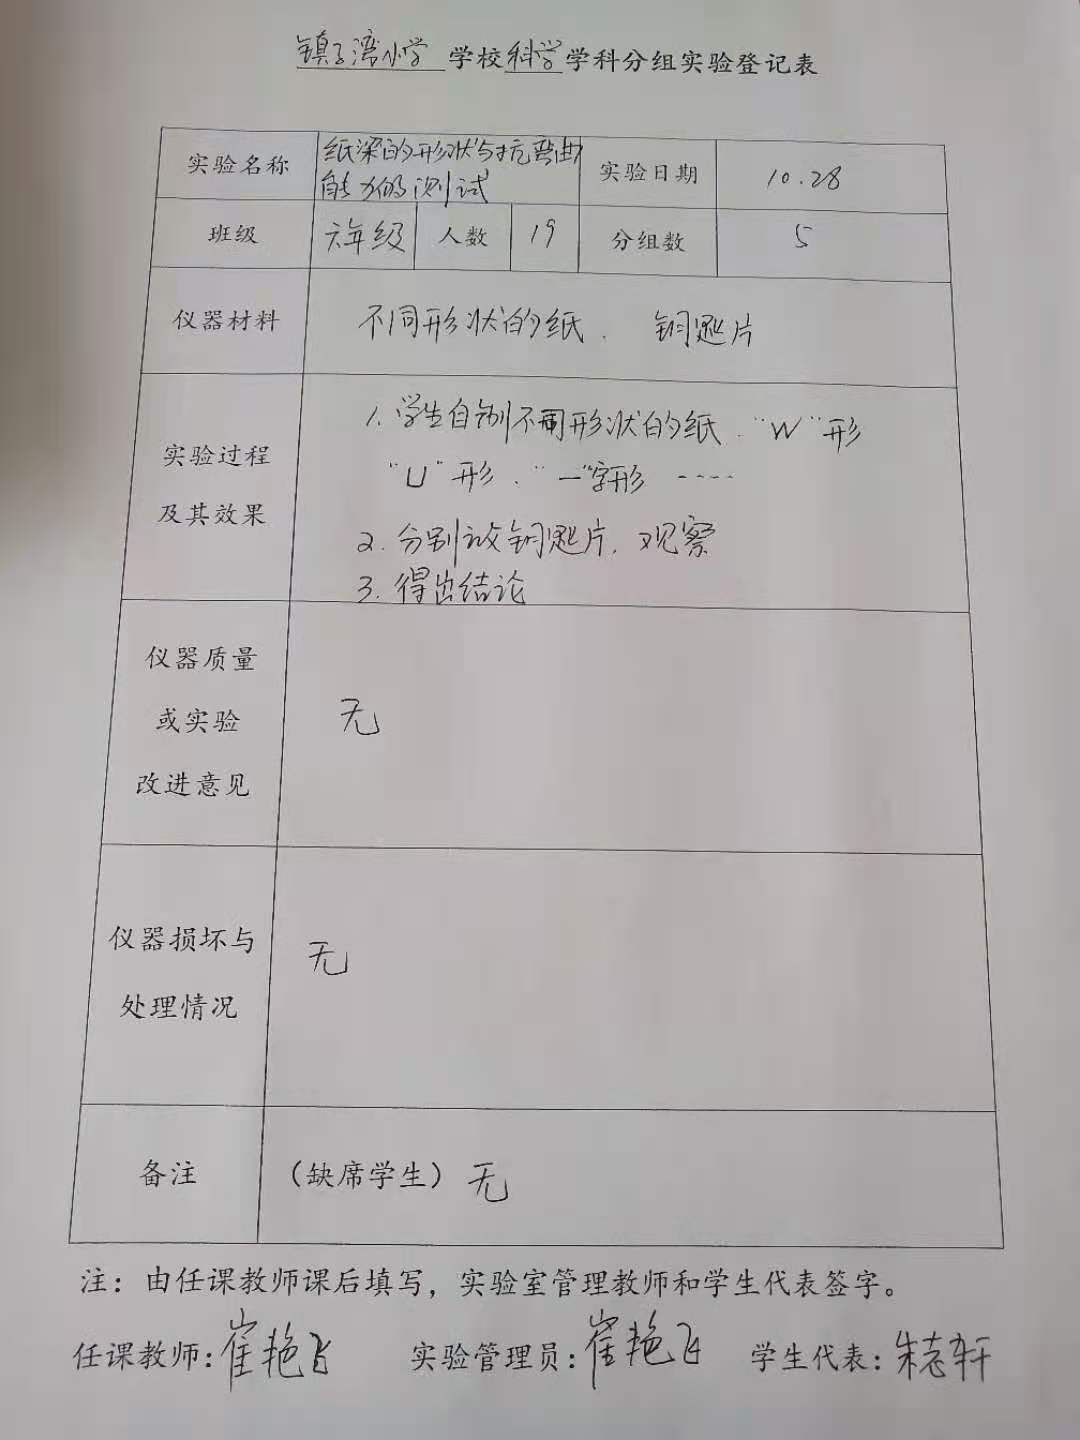 镇子湾小学 学校科学学科分组实验登记表
实验名称 纸梁的形状与抗弯曲能力的测试 实验日期 10.28
班级 六年级 人数 19 分组数 5
仪器材料 不同形状的纸、钥匙片
实验过程及其效果
1.学生自制不同形状的纸."W"形
"U"形、"一"字形 ----
2.分别放钥匙片,观察
3.得出结论
仪器质量
或实验
改进意见
无
仪器损坏与
处理情况
无
备注 (缺席学生)无
注:由任课教师课后填写,实验室管理教师和学生代表签字。
任课教师:崔艳飞 实验管理员:崔艳飞 学生代表:朱志轩